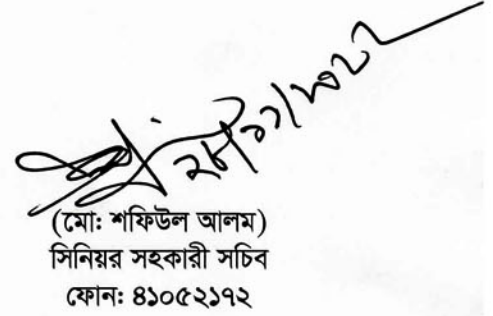 (মো: শফিউল আলম)
সিনিয়র সহকারী সচিব
ফোন: ৪১০৫২১৭২